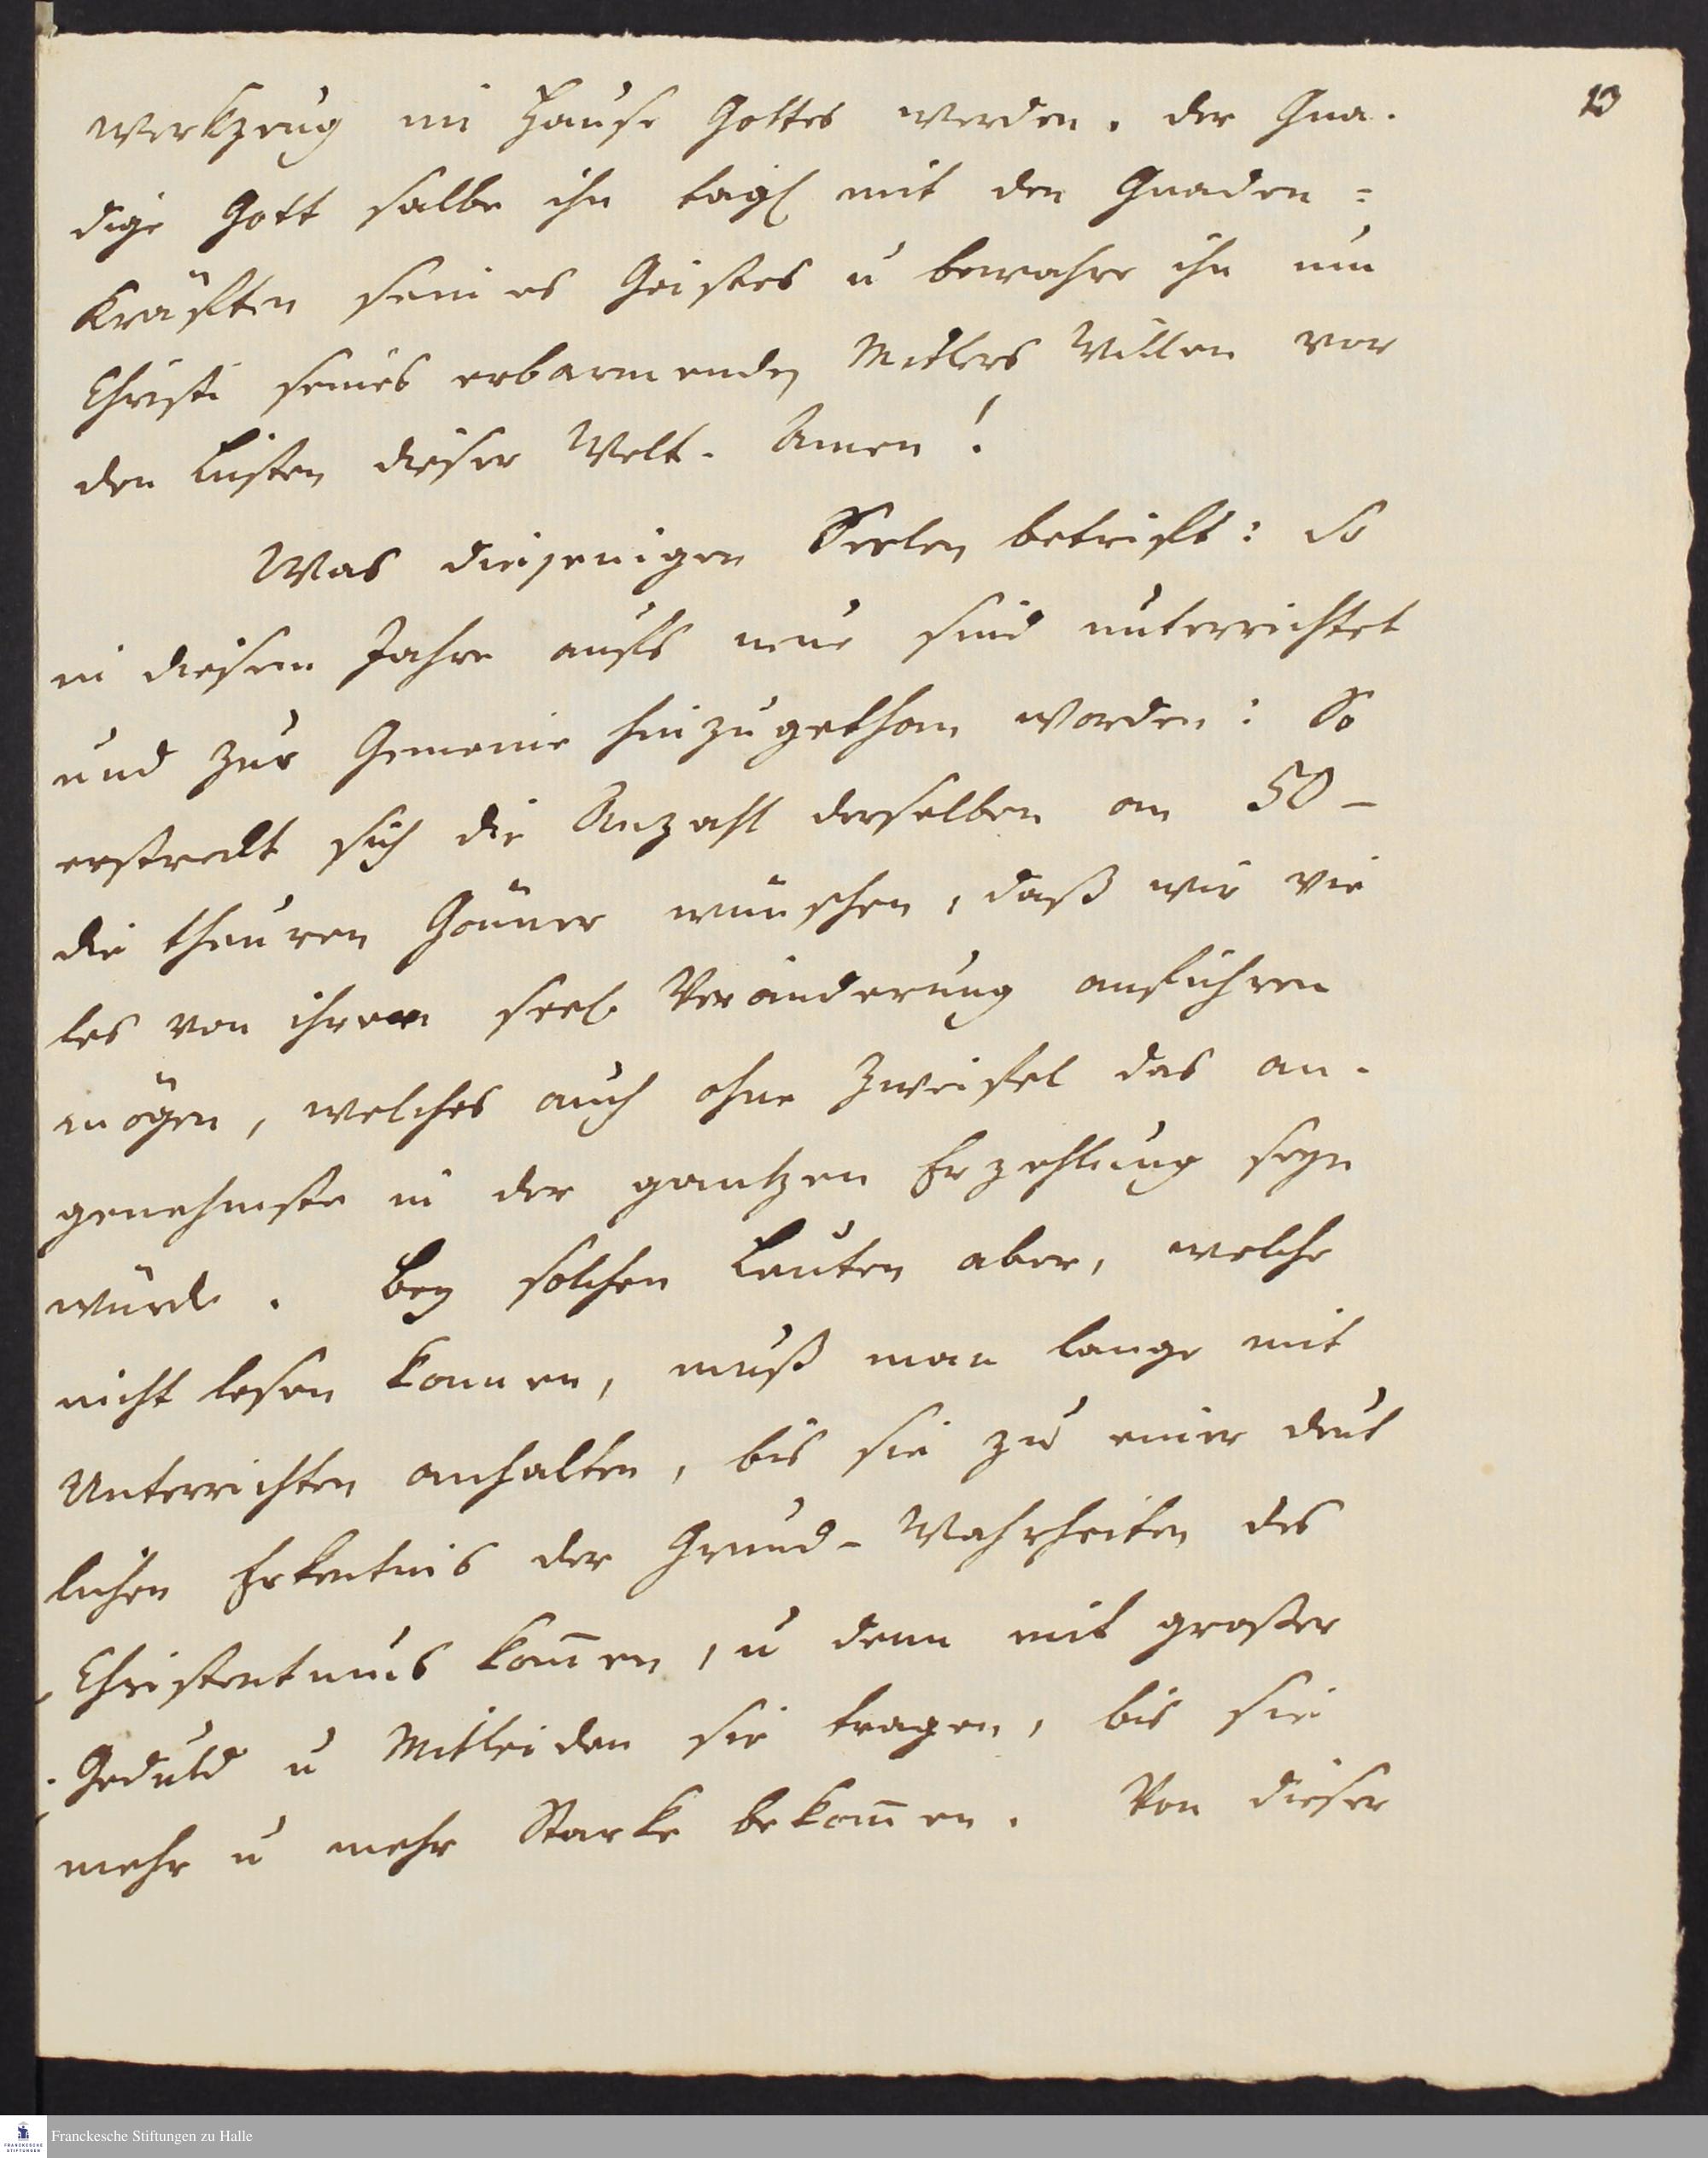 13
Werkzeug im Hause Gottes werden. der Gna-
dige Gott salbe ihn tägl mit den Gnaden=
Kräfften seines Geistes u bewahre ihn um
Christi seines erbarmenden Mitlers Willen vor
den Lüsten dieser Welt. Amen!
Was diejenigen Seelen betrifft: So
in diesem Jahre aufs neue sind unterrichtet
und zur Gemeine hinzugethan worden: So
erstreckt sich die Anzahl derselben an 50 –
die theuren Gönner wünschen, daß wir vie
les von ihrer seel. Veränderung anführen
mögen, welches auch ohne Zweifel das an-
genehmste in der gantzen Erzehlung seyn
würde. Bey solchen Leuten aber, welche
nicht lesen konnen, muß man lange mit
Unterrichten anhalten, bis sie zu einer deut
lichen Erkentnis der Grund-Wahrheiten des
Christentums kom̅en, u denn mit großer
Geduld u Mitleiden sie tragen, bis sie
mehr u mehr Starke bekom̅en. Von dieser
FRANCKESCHE STIFTUNGEN
Franckesche Stiftungen zu Halle